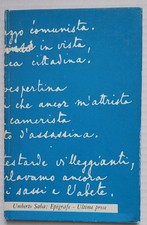 zzo comunista.
in vista,
ca cittadina.
espertina
che ancor m'attrista
camerista
d'assassina.
testarde villeggianti,
rlavamo ancora
i sassi e l'abete.
Umberto Saba: Epigrafe - Ultime prose